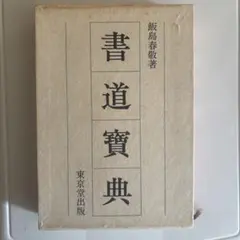 飯島春敬著
書道寶典
東京堂出版